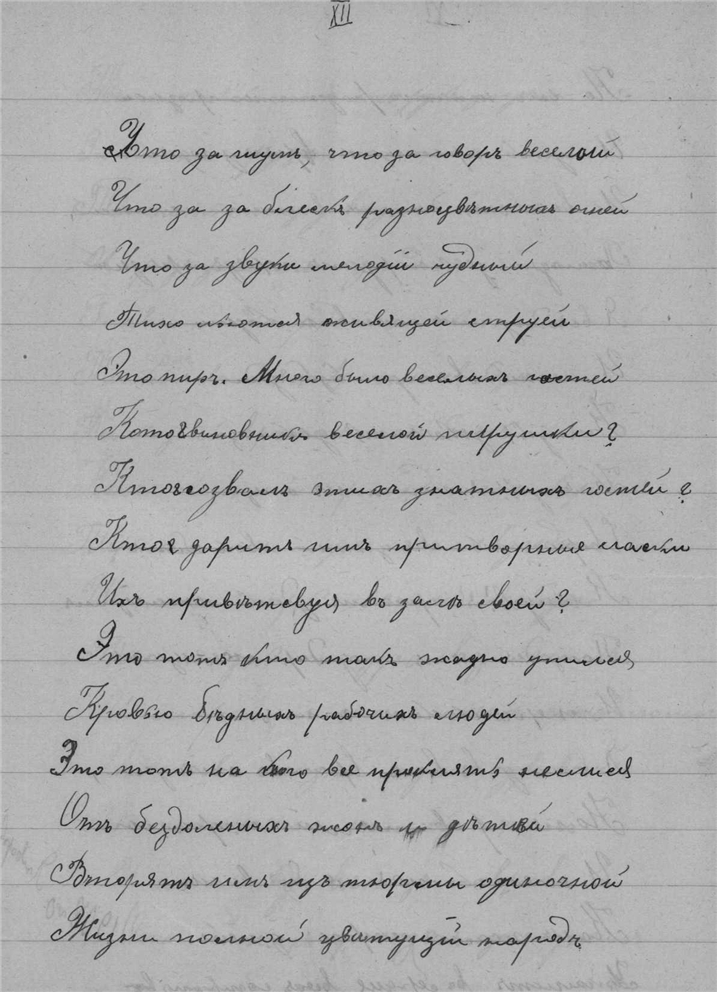 XII
Что за шумъ, что за говоръ веселой
Что за за блескъ разноцвѣтныхъ огней
Что за звуки мелодіи чудный
Тихо льются живящей струей
Это пиръ. Много было веселыхъ гостей
Ктоже виновникъ веселой пирушки?
Ктоже созвалъ этихъ знатныхъ гостей?
Ктоже даритъ имъ притворныя ласки
Ихъ привѣтствуя въ залѣ своей?
Это тотъ кто такъ жадно упился
Кровью бѣдныхъ рабочихъ людей
Это тотъ на кого все проклятья неслися
Отъ бездоленыхъ жонъ и дѣтей
Вторятъ имъ изъ тюрмы одиночной
Жизни полной цвитущій народъ